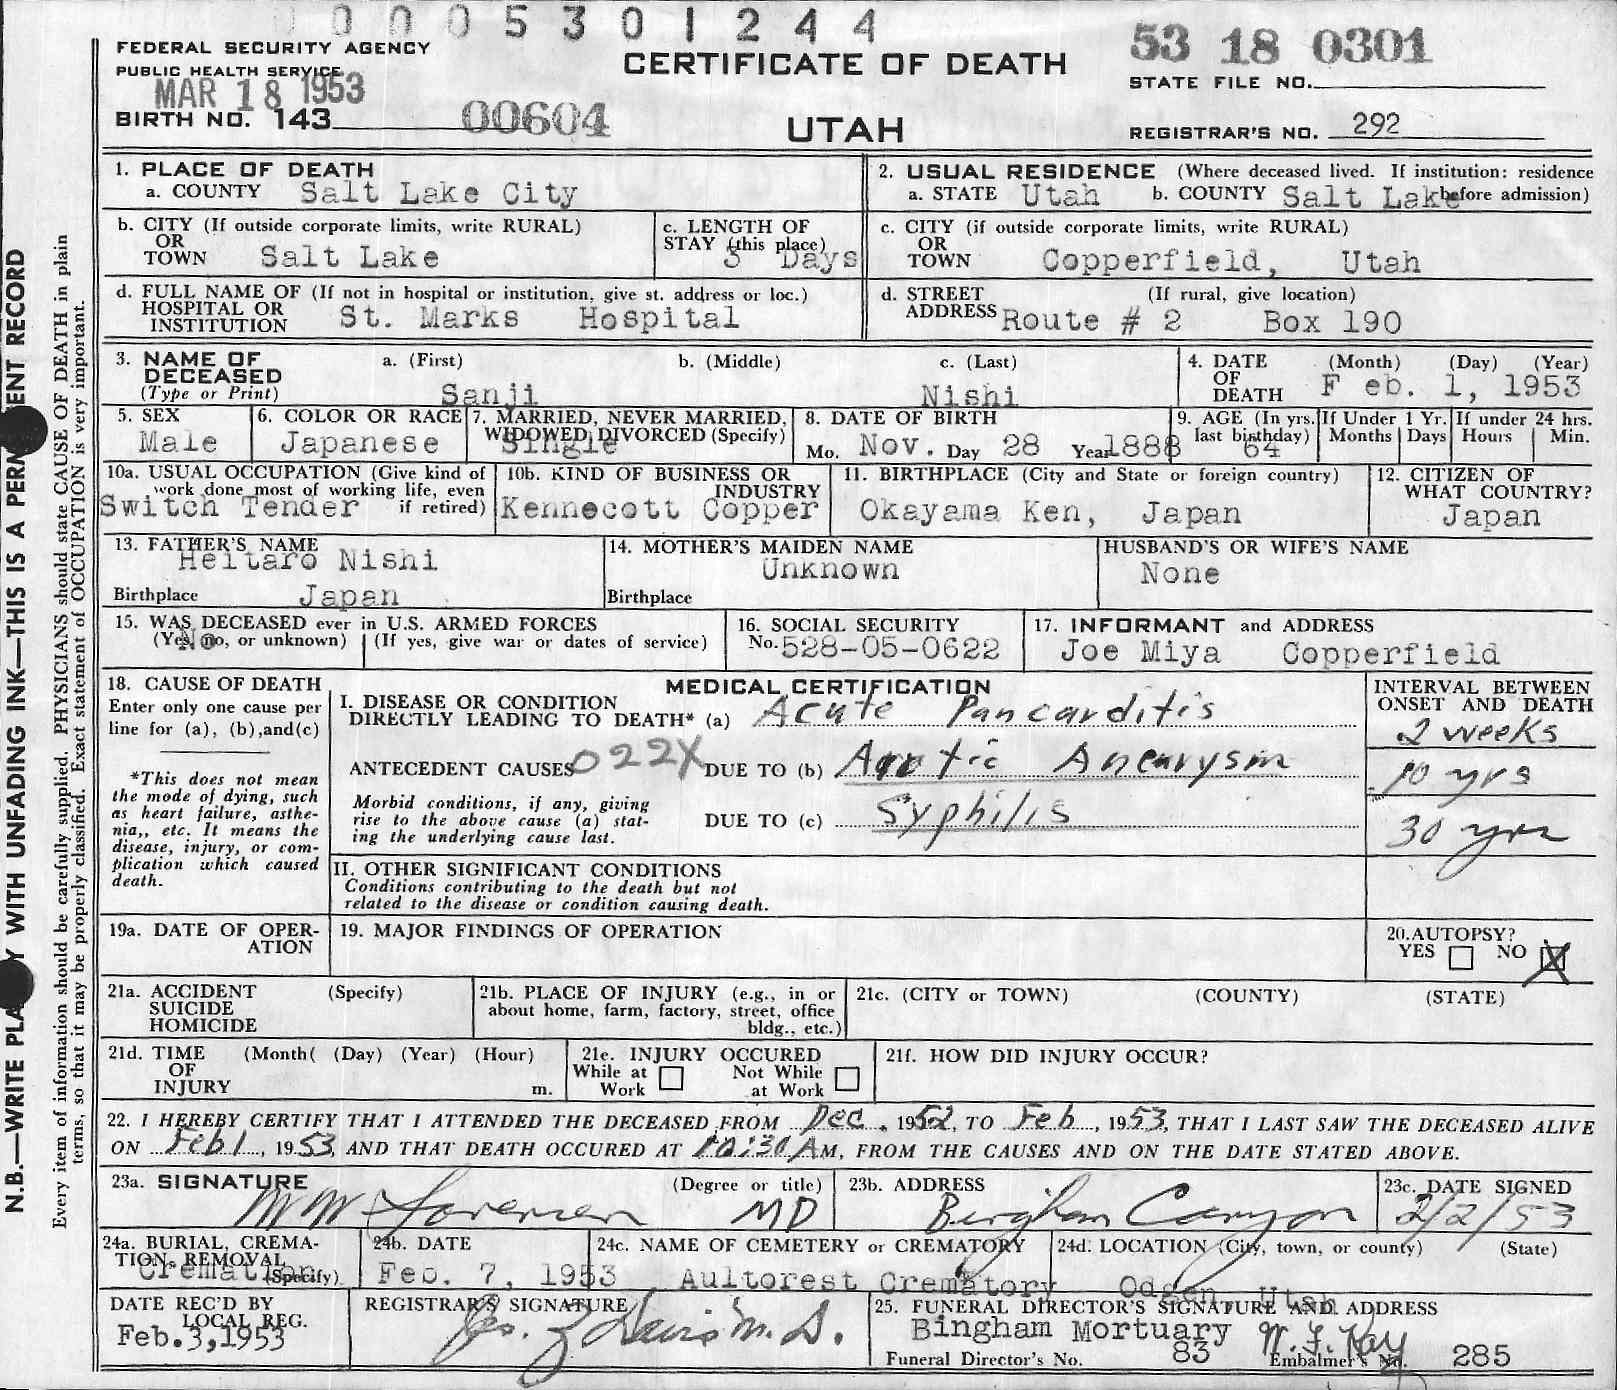 0005301244
FEDERAL SECURITY AGENCY
PUBLIC HEALTH SERVICE
MAR 18 1953
BIRTH NO. 143 00604
CERTIFICATE OF DEATH
UTAH
53 18 0301
STATE FILE NO.
REGISTRAR'S NO. 292
N.B.—WRITE PLA Y WITH UNFADING INK—THIS IS A PERM ENT RECORD
Every item of information should be carefully supplied. PHYSICIANS should state CAUSE OF DEATH in plain
terms, so that it may be properly classified. Exact statement of OCCUPATION is very important.
1. PLACE OF DEATH
a. COUNTY Salt Lake City
2. USUAL RESIDENCE (Where deceased lived. If institution: residence
before admission)
a. STATE Utah b. COUNTY Salt Lake
b. CITY (If outside corporate limits, write RURAL)
OR
TOWN Salt Lake
c. LENGTH OF
STAY (this place)
3 Days
c. CITY (if outside corporate limits, write RURAL)
OR
TOWN Copperfield, Utah
d. FULL NAME OF (If not in hospital or institution, give st. address or loc.)
HOSPITAL OR
INSTITUTION St. Marks Hospital
d. STREET (If rural, give location)
ADDRESS Route # 2 Box 190
3. NAME OF a. (First) b. (Middle) c. (Last)
DECEASED
(Type or Print) Sanji Nishi
4. DATE (Month) (Day) (Year)
OF
DEATH F eb. 1, 1953
5. SEX
Male
6. COLOR OR RACE
Japanese
7. MARRIED, NEVER MARRIED,
WIDOWED, DIVORCED (Specify)
Single
8. DATE OF BIRTH
Mo. Nov. Day 28 Year 1888
9. AGE (In yrs. last birthday)
64
If Under 1 Yr.
Months | Days
If under 24 hrs.
Hours | Min.
10a. USUAL OCCUPATION (Give kind of
work done most of working life, even
if retired)
Switch Tender
10b. KIND OF BUSINESS OR
INDUSTRY
Kennecott Copper
11. BIRTHPLACE (City and State or foreign country)
Okayama Ken, Japan
12. CITIZEN OF
WHAT COUNTRY?
Japan
13. FATHER'S NAME
Heitaro Nishi
Birthplace Japan
14. MOTHER'S MAIDEN NAME
Unknown
Birthplace
HUSBAND'S OR WIFE'S NAME
None
15. WAS DECEASED ever in U.S. ARMED FORCES
(Yes, no, or unknown) (If yes, give war or dates of service)
No
16. SOCIAL SECURITY
No. 528-05-0622
17. INFORMANT and ADDRESS
Joe Miya Copperfield
18. CAUSE OF DEATH
Enter only one cause per
line for (a), (b), and (c)
*This does not mean
the mode of dying, such
as heart failure, asthe-
nia,, etc. It means the
disease, injury, or com-
plication which caused
death.
MEDICAL CERTIFICATION
I. DISEASE OR CONDITION
DIRECTLY LEADING TO DEATH* (a) Acute Pancarditis
ANTECEDENT CAUSES 022X DUE TO (b) Aortic Aneurysm
Morbid conditions, if any, giving
rise to the above cause (a) stat-
ing the underlying cause last.
DUE TO (c) Syphilis
INTERVAL BETWEEN
ONSET AND DEATH
2 weeks
10 yrs
30 yrs
II. OTHER SIGNIFICANT CONDITIONS
Conditions contributing to the death but not
related to the disease or condition causing death.
19a. DATE OF OPER-
ATION
19. MAJOR FINDINGS OF OPERATION
20. AUTOPSY?
YES NO X
21a. ACCIDENT (Specify)
SUICIDE
HOMICIDE
21b. PLACE OF INJURY (e.g., in or
about home, farm, factory, street, office
bldg., etc.)
21c. (CITY or TOWN) (COUNTY) (STATE)
21d. TIME (Month( (Day) (Year) (Hour)
OF
INJURY m.
21e. INJURY OCCURED
While at Work Not While at Work
21f. HOW DID INJURY OCCUR?
22. I HEREBY CERTIFY THAT I ATTENDED THE DECEASED FROM Dec., 1952, TO Feb, 1953, THAT I LAST SAW THE DECEASED ALIVE
ON Feb 1, 1953, AND THAT DEATH OCCURED AT 10:30 AM, FROM THE CAUSES AND ON THE DATE STATED ABOVE.
23a. SIGNATURE (Degree or title)
MD
23b. ADDRESS
Bingham Canyon
23c. DATE SIGNED
2/2/53
24a. BURIAL, CREMA-
TION, REMOVAL
(Specify)
Cremation
24b. DATE
Feb. 7, 1953
24c. NAME OF CEMETERY or CREMATORY
Aultorest Crematory
24d. LOCATION (City, town, or county) (State)
Odgen, Utah
DATE REC'D BY
LOCAL REG.
Feb.3,1953
REGISTRAR'S SIGNATURE
M.D.
25. FUNERAL DIRECTOR'S SIGNATURE AND ADDRESS
Bingham Mortuary
Funeral Director's No. 83 Embalmer's No. 285